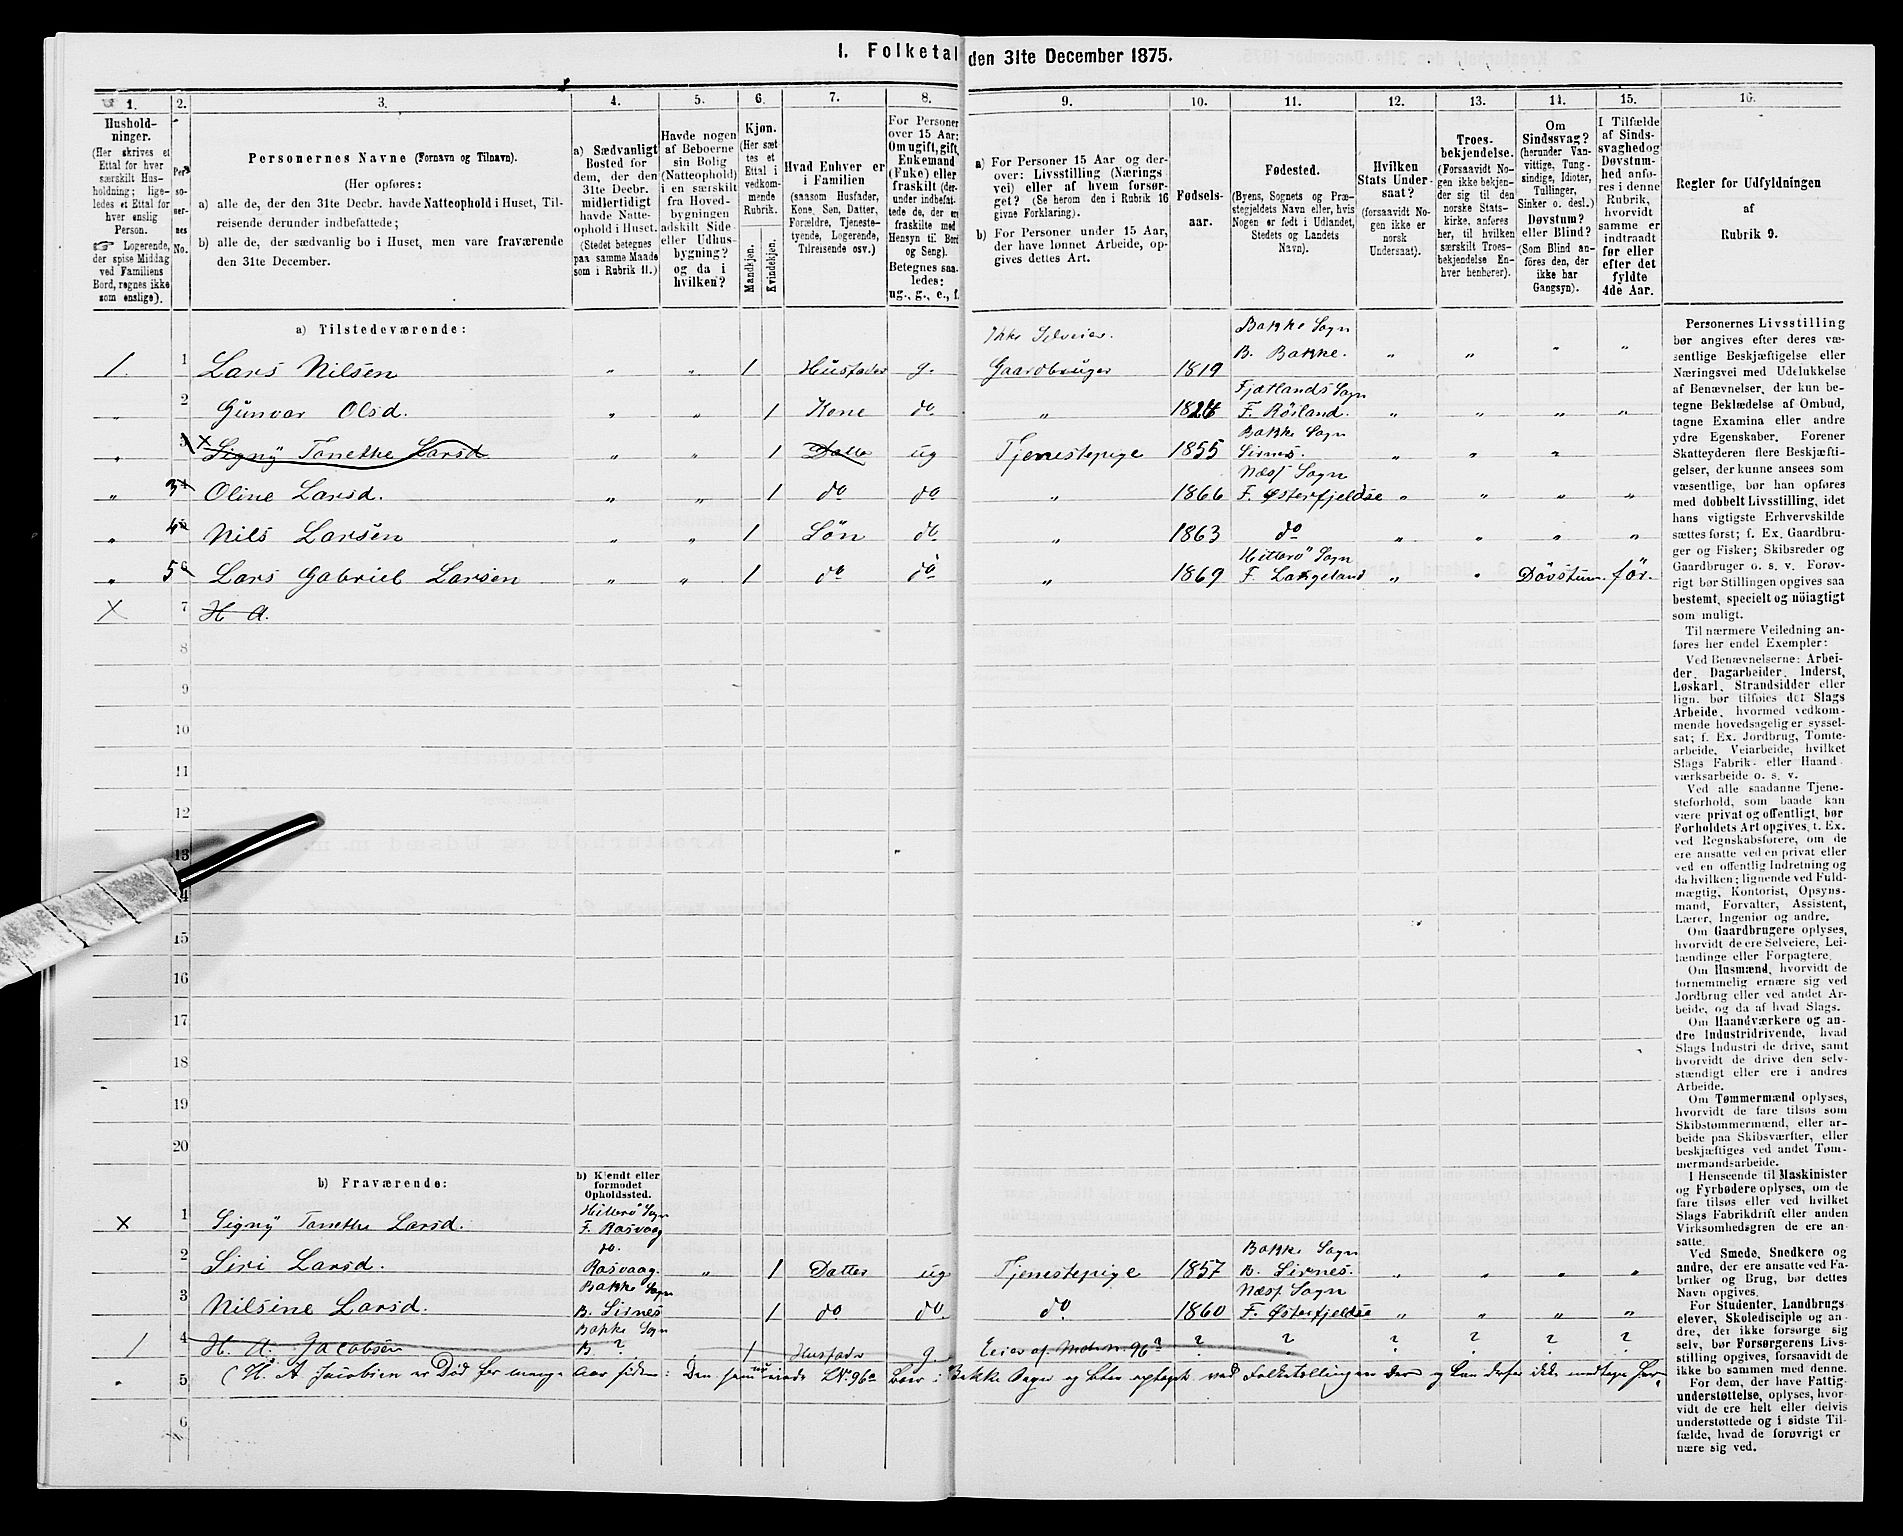 1. Folketal den 31te December 1875.
1.
Hushold-
ninger.
(Her skrives et
Ettal for hver
særskilt Hus-
holdning; lige-
ledes et Ettal for
hver enslig
Person.
☞ Logerende,
der spise Middag
ved Familiens
Bord, regnes ikke
som enslige).
2.
Per-
so-
ner-
nes
No.
3.
Personernes Navne (Fornavn og Tilnavn).
(Her opføres:
a) alle de, der den 31te Decbr. havde Natteophold i Huset, Til-
reisende derunder indbefattede;
b) alle de, der sædvanlig bo i Huset, men vare fraværende
den 31te December.
4.
a) Sædvanligt
Bosted for
dem, der den
31te Decbr.
midlertidigt
havde Natte-
ophold i Huset.
(Stedet betegnes
paa samme Maade
som i Rubrik 11.)
5.
Havde nogen
af Beboerne
sin Bolig
(Natteophold)
i en særskilt
fra Hoved-
bygningen
adskilt Side-
eller Udhus-
bygning?
og da i
hvilken?
6.
Kjøn.
(Her sæt-
tes et
Ettal i
vedkom-
mende
Rubrik.
Mandkjøn.
Kvindekjøn.
7.
Hvad Enhver er
i Familien
(saasom Husfader,
Kone, Søn, Datter,
Forældre, Tjeneste-
tyende, Logerende,
Tilreisende osv.)
8.
For Personer
over 15 Aar:
Om ugift, gift,
Enkemand
(Enke) eller
fraskilt (der-
under indbefat-
tede de, der ere
fraskilte med
Hensyn til Bord
og Seng).
Betegnes saa-
ledes:
ug., g., e., f.
9.
a) For Personer 15 Aar og der-
over: Livsstilling (Nærings-
vei) eller af hvem forsør-
get? (Se herom den i Rubrik 16
givne Forklaring).
b) For Personer under 15 Aar,
der have lønnet Arbeide, op-
gives dettes Art.
10.
Fødsels-
aar.
11.
Fødested.
(Byens, Sognets og Præ-
stegjeldets Navn eller, hvis
Nogen er født i Udlandet,
Stedets og Landets
Navn).
12.
Hvilken
Stats Under-
saat?
(forsaavidt No-
gen ikke er
norsk
Undersaat).
13.
Troes-
bekjendelse.
(Forsaavidt No-
gen ikke bekjen-
der sig til den
norske Stats-
kirke, anføres
her, til hvilken
særskilt Troes-
bekjendelse En-
hver henhører).
14.
Om
Sindssvag?
(herunder Van-
vittige, Tung-
sindige, Idioter,
Tullinger,
Sinker o. desl.)
Døvstum?
eller Blind?
(Som Blind an-
føres den, der
ikke har
Gangsyn).
15.
I Tilfælde
af Sinds-
svaghed og
Døvstum-
hed anfø-
res i denne
Rubrik,
hvorvidt
samme er
indtraadt
før eller
efter det
fyldte
4de Aar.
16.
Regler for Udfyldningen
af
Rubrik 9.
a) Tilstedeværende:
Ikke Selveier. Bakke Sogn
1. 1 Lars Nilsen „ „ 1 Husfader g. Gaardbruger 1819 B. Bakke. „ „ „ „
Fjotlands Sogn
„ 2 Gunvor Olsd. „ „ 1 Kone do „ 1824 F. Röiland. „ „ „ „
Bakke Sogn
„ X Signy Tonethe Larsd „ „ 1 Datter ug Tjenestepige 1855 Sirnes. „ „ „
Næs Sogn
„ 3 4 Oline Larsd. „ „ 1 do do „ 1866 F. Østerfjeldse „ „ „ „
„ 4 5 Nils Larsen „ „ 1 Sön do „ 1863 do „ „ „ „
Hitterö Sogn
„ 5 6 Lars Gabriel Larsen „ „ 1 do do „ 1869 F. „ „ Dövstum. för.
X 7 H A.
8
9
10
11
12
13
14
15
16
17
18
19
20
b) Fraværende:
b) Kjendt eller
formodet
Opholdssted.
Hitterö Sogn
X 1 Signy Tonethe Larsd. F. Rasvaag
do. Bakke Sogn
2 Siri Larsd. Rasvaag. „ 1 Datter ug Tjenestepige 1857 B. Sirnes. „ „ „ „
Bakke Sogn Næs Sogn
3 Nilsine Larsd. B. Sirnes 1 do do. do 1860 F. Østerfjeldse „ „ „ „
Bakke Sogn
1 4 H. A. Jacobsen B. ? 1 Husfader g. Eier af Matr. N. 96a ? ? ? ? ? ?
„ 5 (H. A Jacobsen er Död for mange Aar siden: Den nu L.No 96a boer i Bakke Sogn og blev optagt ved Folketællingen der og kan derfor ikke medtages her
6
Personernes Livsstilling
bør angives efter deres væ-
sentlige Beskjæftigelse eller
Næringsvei med Udelukkelse
af Benævnelser, der kun be-
tegne Beklædelse af Ombud,
tagne Examina eller andre
ydre Egenskaber. Forener
Skatteyderen flere Beskjæfti-
gelser, der kunne ansees som
væsentlige, bør han opføres
med dobbelt Livsstilling, idet
hans vigtigste Erhvervskilde
sættes først; f. Ex. Gaardbru-
ger og Fisker; Skibsreder og
Gaardbruger o. s. v. Forøv-
rigt bør Stillingen opgives saa
bestemt, specielt og nöiagtigt
som muligt.
Til nærmere Veiledning an-
føres her endel Exempler:
Ved Benævnelserne: Arbei-
der, Dagarbeider, Inderst,
Løskarl, Strandsidder eller
lign. bør tilføies det Slags
Arbeide, hvormed vedkom-
mende hovedsagelig er syssel-
sat; f. Ex. Jordbrug, Tomte-
arbeide, Veiarbeide, hvilket
Slags Fabrik- eller Haand-
værksarbeide o. s. v.
Ved alle saadanne Tjene-
steforhold, som baade kan
være privat og offentligt, bør
Forholdets Art opgives, t. Ex.
ved Regnskabsførere, om de
ere ansatte ved en privat eller
ved en offentlig Indretning og
da hvilken; lignende ved Fuld-
mægtig, Kontorist, Opsyns-
mand, Forvalter, Assistent,
Lærer, Ingeniør og andre.
Om Gaardbrugere oplyses,
hvorvidt de ere Selveiere, Lei-
lændinge eller Forpagtere.
Om Husmænd, hvorvidt de
fornemmelig ernære sig ved
Jordbrug eller ved andet Ar-
beide, og da af hvad Slags.
Om Haandværkere og an-
dre Industridrivende, hvad
Slags Industri de drive, samt
hvorvidt de drive den selv-
stændigt eller ere i andres
Arbeide.
Om Tømmermænd oplyses,
hvorvidt de fare tilsøs som
Skibstømmermænd, eller ar-
beide paa Skibsværfter, eller
beskjæftiges ved andet Tøm-
mermandsarbeide.
I Henseende til Maskinister
og Fyrbødere oplyses, om de
fare tilsøs eller ved hvilket
Slags Fabrikdrift eller anden
Virksomhedsgren de ere an-
satte.
Ved Smede, Snedkere og
andre, der ere ansatte ved Fa-
briker og Brug, bør dettes
Navn opgives.
For Studenter, Landbrugs-
elever, Skoledisciple og an-
dre, der ikke forsørge sig
selv, bør Forsørgerens Livs-
stilling opgives, forsaavidt de
ikke bo sammen med denne.
For dem, der have Fattig-
understøttelse, oplyses, hvor-
vidt de ere helt eller delvis
understøttede og i sidste Til-
fælde, hvad de forøvrigt er-
nære sig ved.